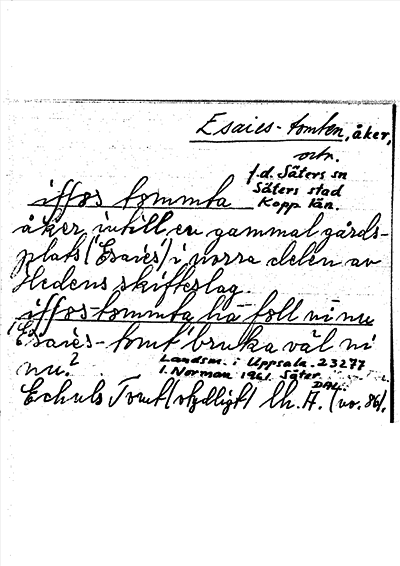 Esaies-tomten, åker,
ortn.
f.d. Säters sn
Säters stad
Kopp. län.
iffos tommta
åker intill en gammal gårds-
plats ('Esaies') i norra delen av
Hedens skifteslag.
iffos-tommta ha foll ni nu
'Esaies-tomt' bruka väl ni
nu?
Landsm. i Uppsala. 23277
I. Norman 1961. Säter.
DAL.
Tomt (otydligt) lh. A. (nr. 86).